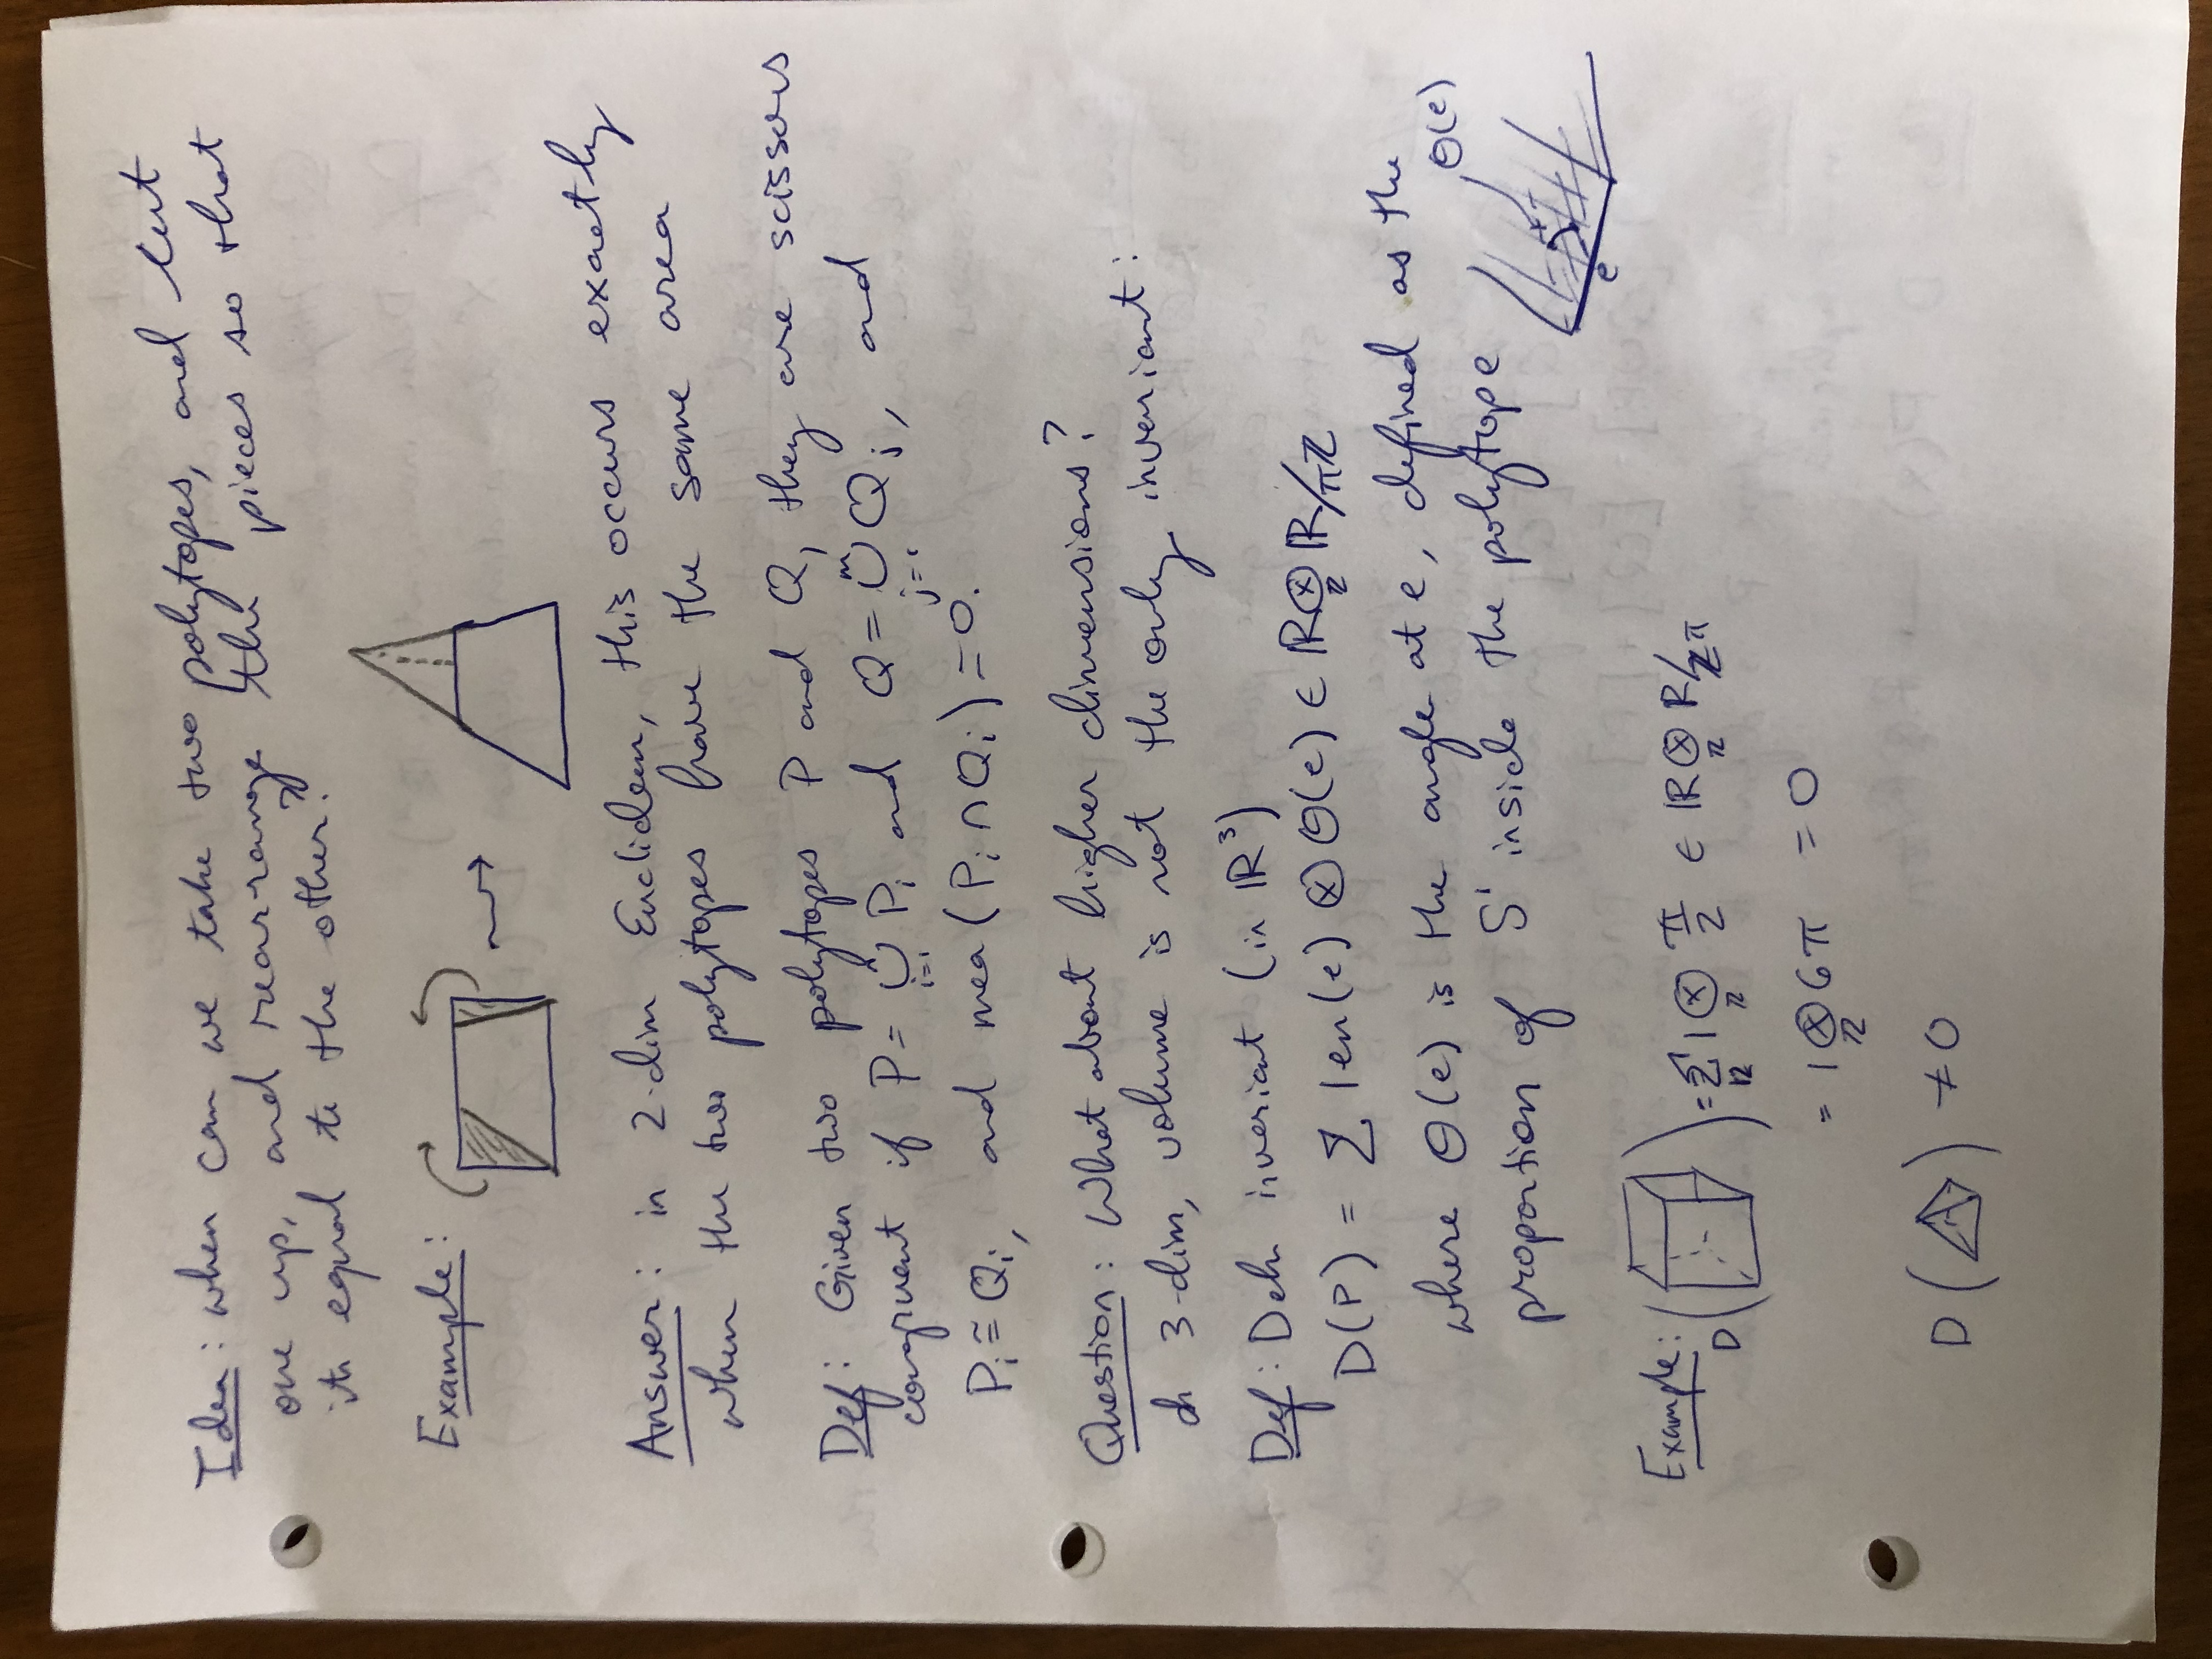 Idea: when can we take two polytopes, and cut
one up, and rearrange the pieces so that
its equal to the other?
Example:
Answer: in 2-dim Euclidean, this occurs exactly
when the two polytopes have the same area
Def: Given two polytopes P and Q, they are scissors
congruent if P = ⋃_{i=1}^{n} P_i and Q = ⋃_{j=1}^{m} Q_j, and
P_i ≅ Q_i, and mea(P_i ∩ Q_i) = 0.
Question: What about higher dimensions?
In 3-dim, volume is not the only invariant:
Def: Dehn invariant (in ℝ³)
D(P) = Σ len(e) ⊗ Θ(e) ∈ ℝ ⊗_ℤ ℝ/πℤ
where Θ(e) is the angle at e, defined as the
Θ(e)
proportion of S¹ inside the polytope
e
Example:
D( ) = Σ_{12} 1 ⊗_ℤ π/2 ∈ ℝ ⊗_ℤ ℝ/ℤπ
= 1 ⊗_ℤ 6π = 0
D( ) ≠ 0